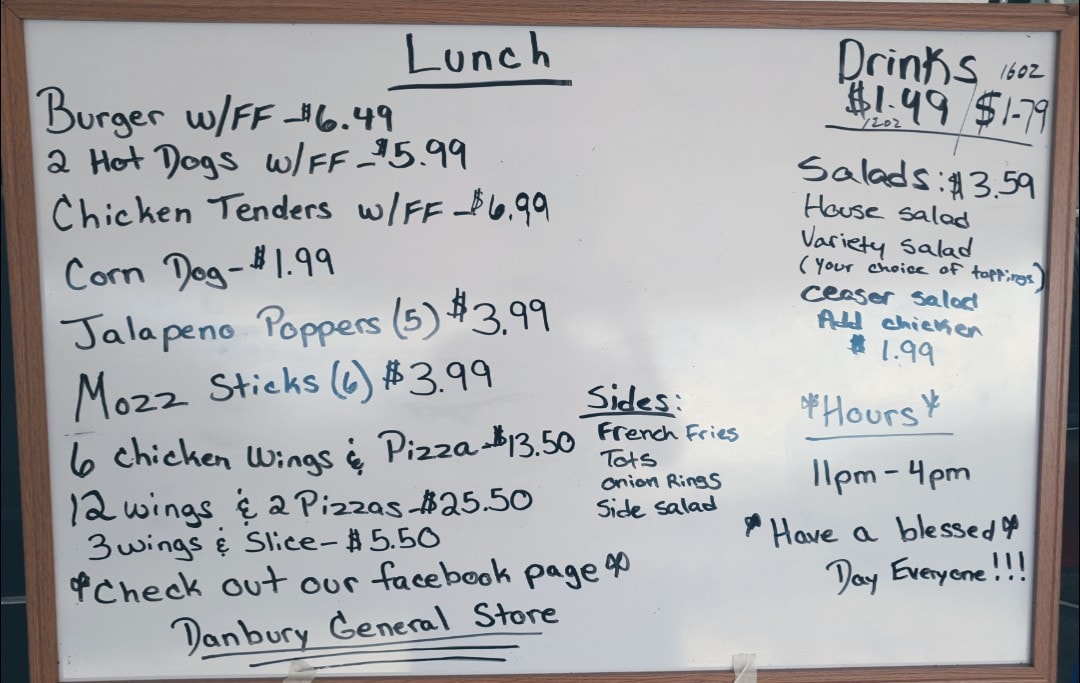 Lunch
Burger w/FF - $6.49
2 Hot Dogs w/FF - $5.99
Chicken Tenders w/FF - $6.99
Corn Dog - $1.99
Jalapeno Poppers (5) $3.99
Mozz Sticks (6) $3.99
6 Chicken Wings & Pizza - $13.50
12 wings & 2 Pizzas - $25.50
3 wings & Slice - $5.50
*Check out our facebook page*
Danbury General Store
Sides:
French Fries
Tots
onion Rings
Side salad
Drinks 16oz
$1.49 / $1.79
12oz
Salads: $3.59
House salad
Variety Salad
(Your choice of toppings)
Ceaser salad
Add chicken
$1.99
*Hours*
11pm - 4pm
*Have a blessed*
Day Everyone!!!